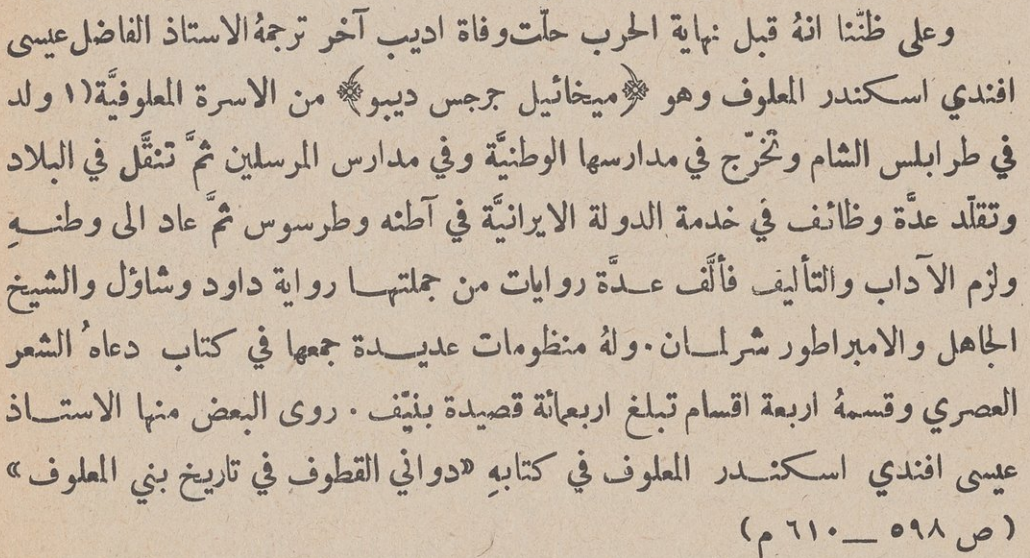 وعلى ظنّنا انهُ قبل نهاية الحرب حلّت وفاة اديب آخر ترجمهُ الاستاذ الفاضل عيسى
افندي اسكندر المعلوف وهو ﴿ميخائيل جرجس ديبو﴾ من الاسرة المعلوفيَّة(١ ولد
في طرابلس الشام وتخرّج في مدارسها الوطنيَّة وفي مدارس المرسلين ثمَّ تنقَّل في البلاد
وتقلّد عدَّة وظائف في خدمة الدولة الايرانيَّة في آطنه وطرسوس ثمَّ عاد الى وطنهِ
ولزم الآداب والتأليف فألَّف عدَّة روايات من جملتها رواية داود وشاؤل والشيخ
الجاهل والامبراطور شرلمان. ولهُ منظومات عديدة جمعها في كتاب دعاهُ الشعر
العصري وقسمهُ اربعة اقسام تبلغ اربعمائة قصيدة بنيّف. روى البعض منها الاستاذ
عيسى افندي اسكندر المعلوف في كتابهِ «دواني القطوف في تاريخ بني المعلوف»
(ص ٥٩٨ – ٦١٠ م)